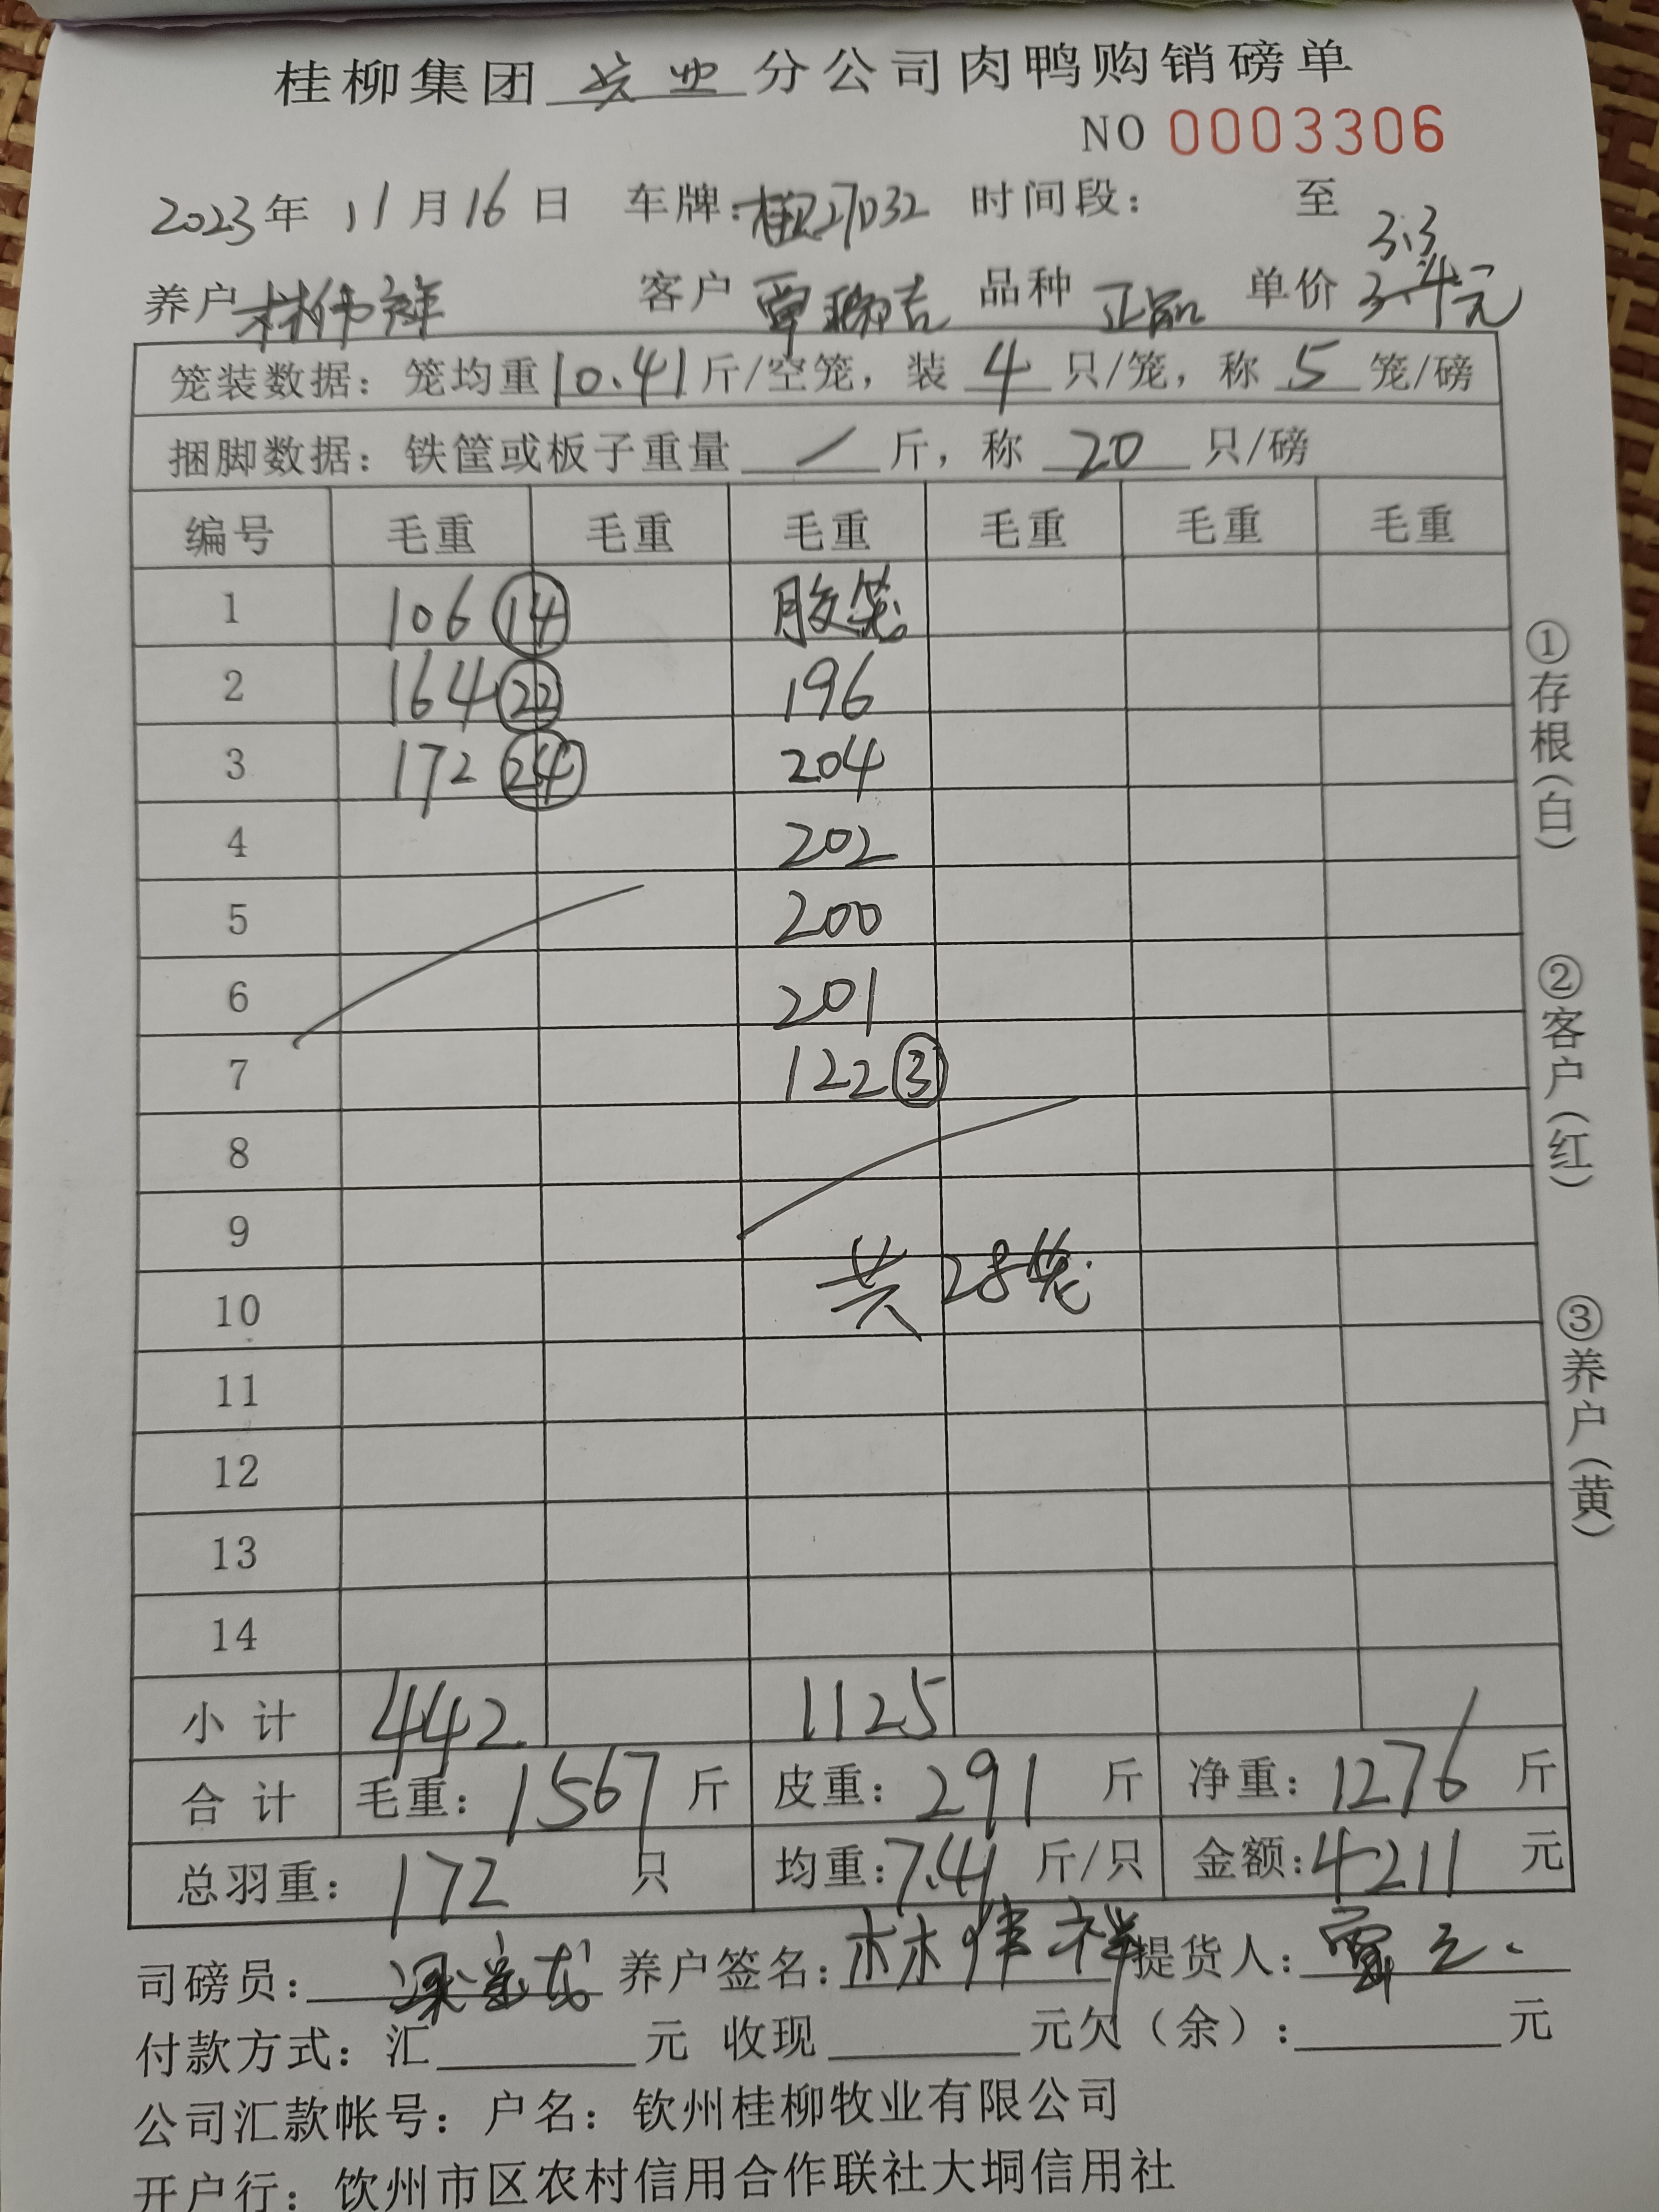 桂柳集团 牧业 分公司肉鸭购销磅单
NO 0003306
2023年 11月16日 车牌:桂R27032 时间段： 至
3.3
养户 林伟祥 客户 覃 品种 正品 单价 3.4元
笼装数据：笼均重10.41斤/空笼，装 4 只/笼，称 5 笼/磅
捆脚数据：铁筐或板子重量 / 斤，称 20 只/磅
编号 毛重 毛重 毛重 毛重 毛重 毛重
1 106 ⑭ 胶笼
2 164 ㉒ 196
3 172 ㉔ 204
4 202
5 200
6 201
7 122 ③
8
9
10 共28笼
11
12
13
14
小计 442 1125
合计 毛重：1567斤 皮重：291 斤 净重：1276 斤
总羽重：172 只 均重：7.41 斤/只 金额：4211 元
司磅员： 养户签名：林伟祥 提货人：覃
付款方式：汇 元 收现 元欠（余）： 元
公司汇款帐号：户名：钦州桂柳牧业有限公司
开户行：饮州市区农村信用合作联社大垌信用社
①存根（白）
②客户（红）
③养户（黄）